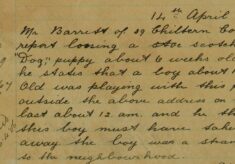 14th April
Mr Barrett of 29 Chiltern Co
report losing a scotch
"Dog," puppy about 6 weeks old
he states that a boy about 1
Old was playing with this p
outside the above address on
last about 12 am. and he th
this boy must have take
away the boy was a stran
to the neighbourhood